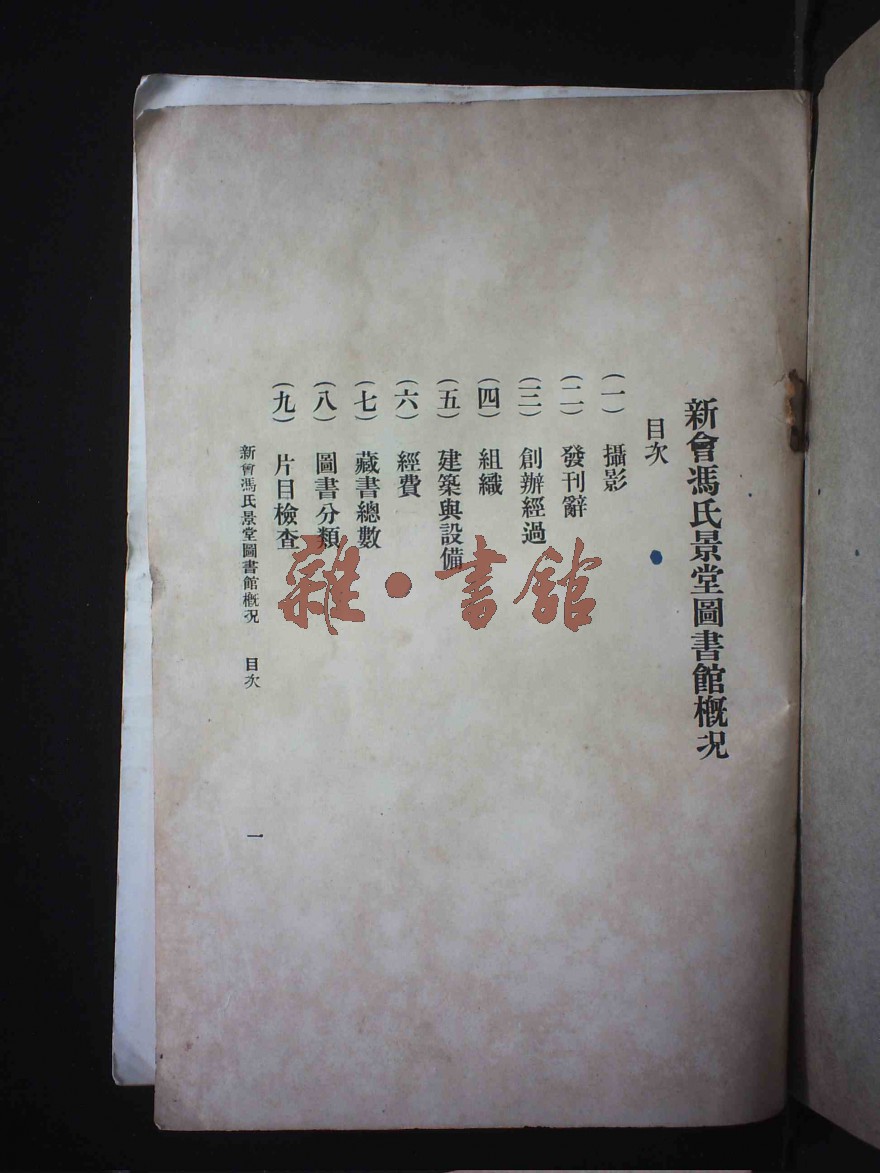 新會馮氏景堂圖書館概況
目次
(一) 攝影
(二) 發刊辭
(三) 創辦經過
(四) 組織
(五) 建築與設備
(六) 經費
(七) 藏書總數
(八) 圖書分類
(九) 片目檢查
新會馮氏景堂圖書館概況 目次 一
雜·書館